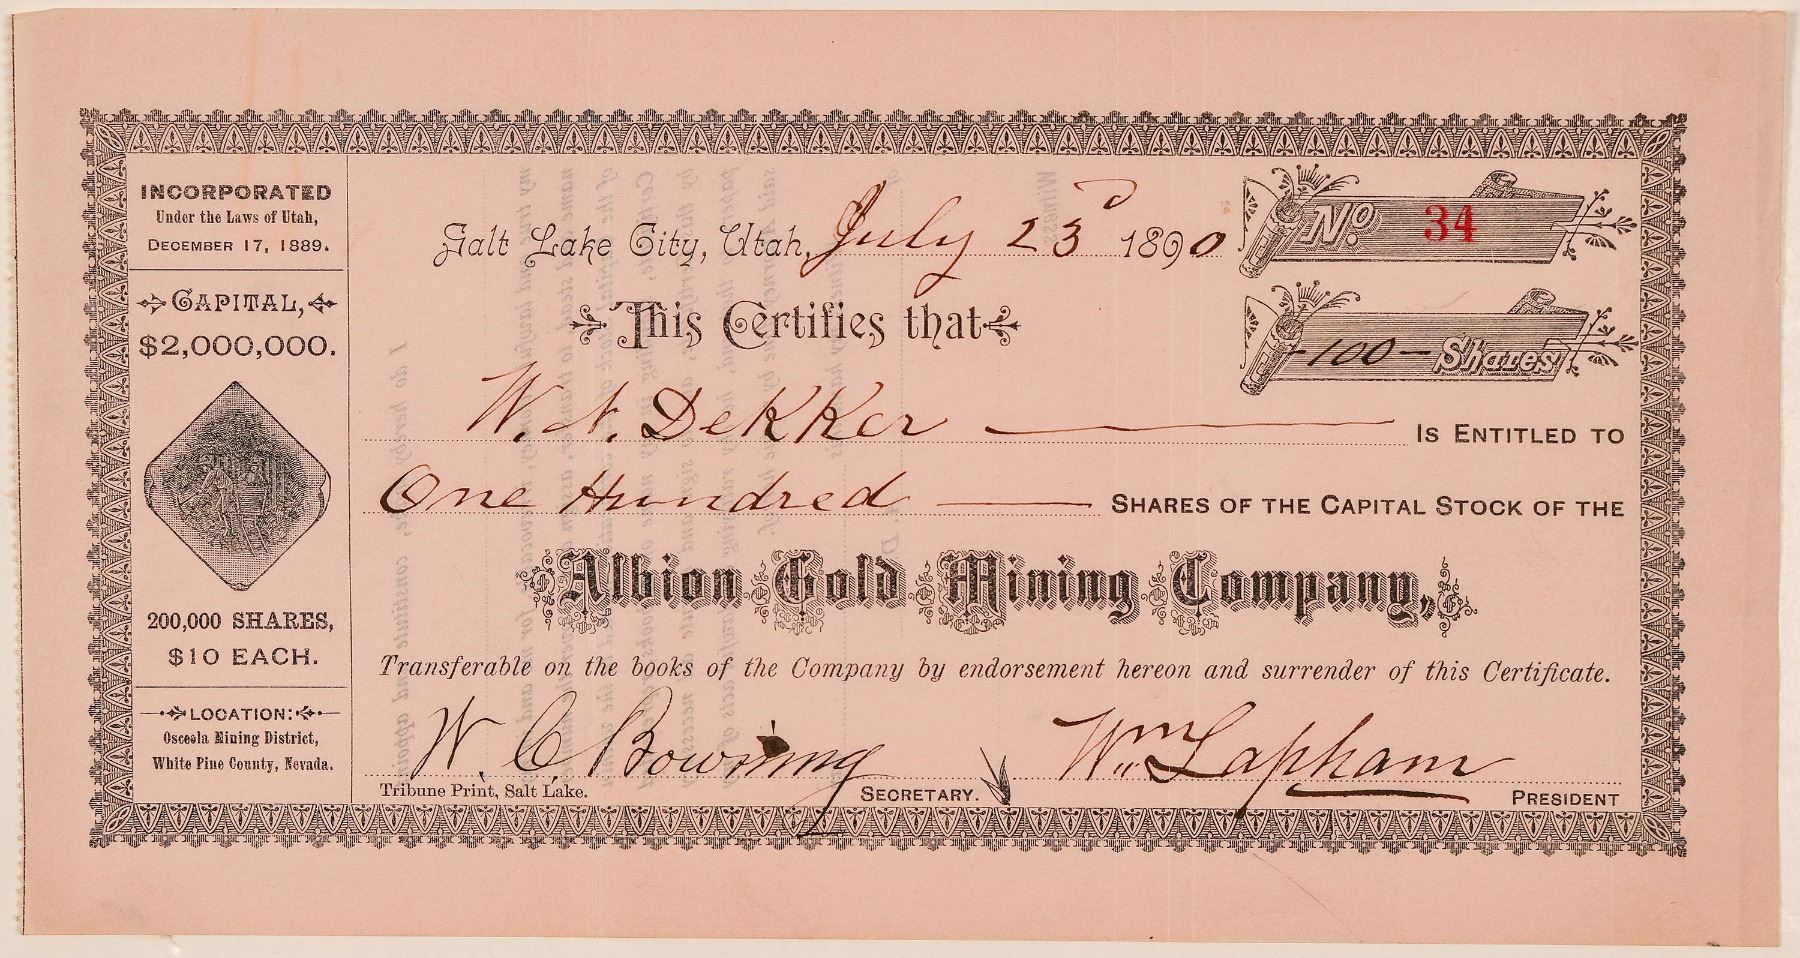 INCORPORATED
Under the Laws of Utah,
DECEMBER 17, 1889.
CAPITAL,
$2,000,000.
200,000 SHARES,
$10 EACH.
LOCATION:
Osceola Mining District,
White Pine County, Nevada.
Salt Lake City, Utah, July 23d 1890
No. 34
-100- Shares
This Certifies that
W. N. Dekker IS ENTITLED TO
One Hundred SHARES OF THE CAPITAL STOCK OF THE
Albion Gold Mining Company,
Transferable on the books of the Company by endorsement hereon and surrender of this Certificate.
W. C. Bowring Wm Lapham
Tribune Print, Salt Lake. SECRETARY. PRESIDENT